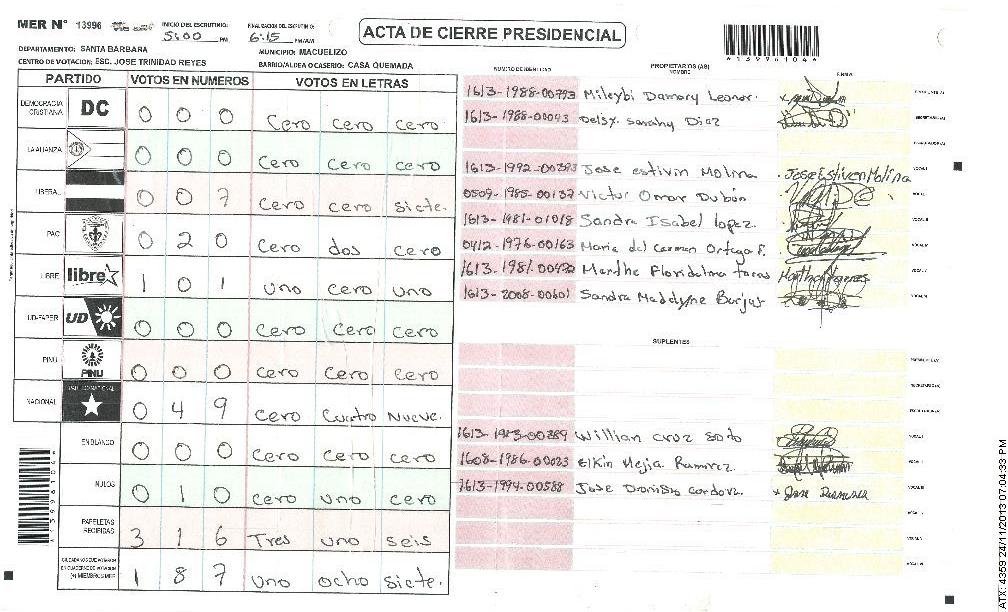 MER N° 13996 INICIO DEL ESCRUTINIO: 5:00 PM FINALIZACION DEL ESCRUTINIO: 6:15 PM/AM
ACTA DE CIERRE PRESIDENCIAL
*1399610 4*
DEPARTAMENTO: SANTA BARBARA MUNICIPIO: MACUELIZO
CENTRO DE VOTACION: ESC. JOSE TRINIDAD REYES BARRIO/ALDEA O CASERIO: CASA QUEMADA
PARTIDO VOTOS EN NUMEROS VOTOS EN LETRAS
DEMOCRACIA CRISTIANA DC 0 0 0 Cero Cero Cero
LA ALIANZA 0 0 0 Cero Cero Cero
LIBERAL 0 0 7 Cero Cero Siete.
PAC 0 2 0 Cero dos Cero
LIBRE libre 1 0 1 Uno Cero Uno
UD-FAPER UD 0 0 0 Cero Cero Cero
PINU PINU 0 0 0 Cero Cero Cero
NACIONAL PARTIDO NACIONAL 0 4 9 Cero Cuatro Nueve.
EN BLANCO 0 0 0 Cero Cero Cero
NULOS 0 1 0 Cero Uno Cero
PAPELETAS RECIBIDAS 3 1 6 Tres Uno Seis
CIUDADANOS QUE VOTARON EN CUADERNO DE VOTACION (+) MIEMBROS MER 1 8 7 Uno Ocho Siete.
NUMERO DE IDENTIDAD PROPIETARIOS (AS) NOMBRE FIRMA
1613-1988-00793 Mileybi Damary Leonor
1613-1988-00043 Delsy Sarahy Diaz
1613-1992-00393 Jose estivin Molina Jose Estiven Molina
0509-1985-00137 Victor Omar Dubón
1613-1981-01018 Sandra Isabel lopez.
0412-1976-00163 Maria del Carmen Ortega F.
1613-1981-00472 Martha Floridelma
1613-2008-00601 Sandra Madelyne Borjas
SUPLENTES
1613-1983-00389 Willian Cruz Soto
1608-1986-00023 Elkin Mejia Ramirez.
1613-1994-00588 Jose Dionisio Cordova.
ATX: 4359 24/11/2013 07:04:33 PM